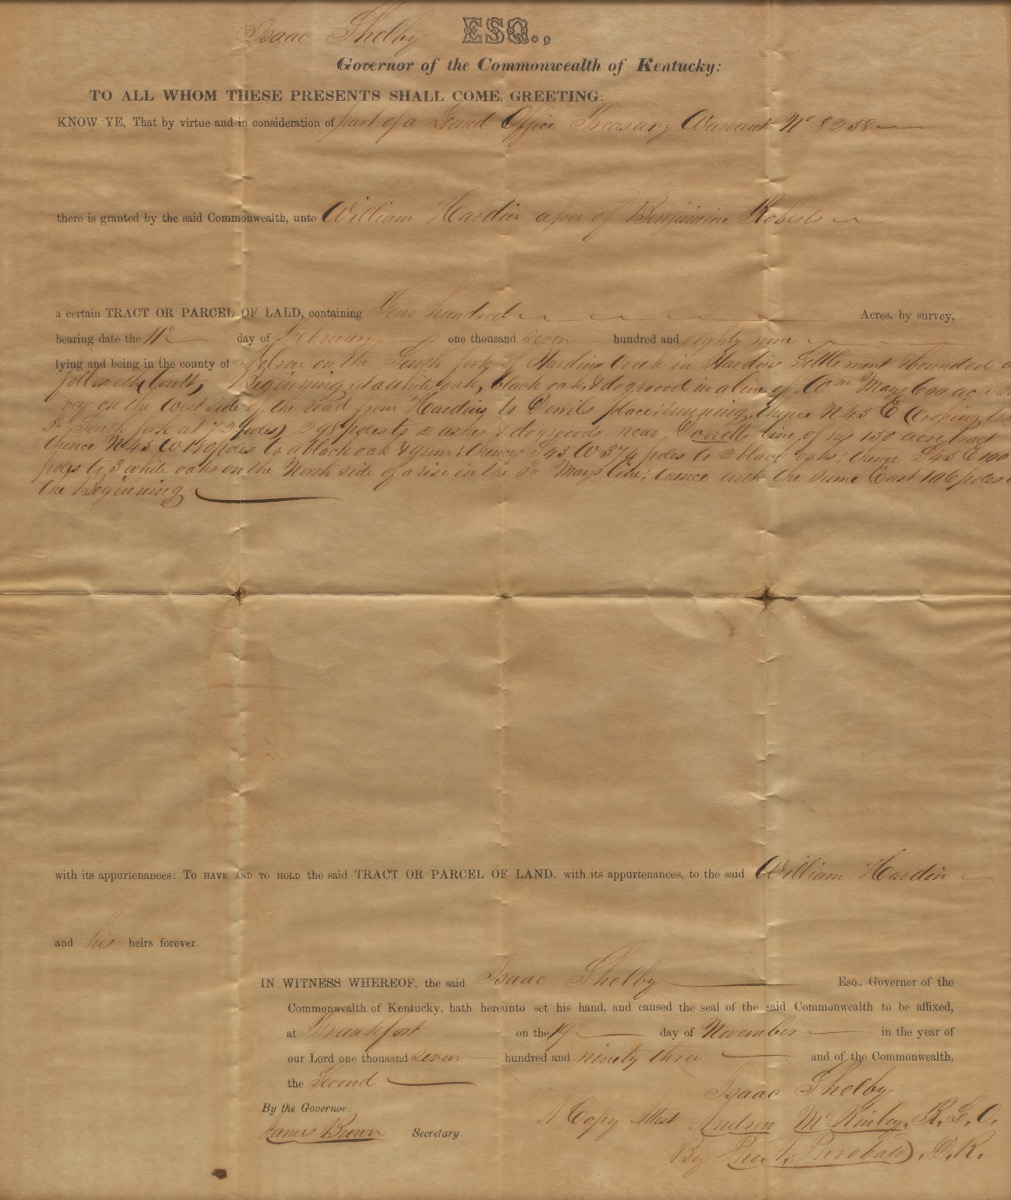 Isaac Shelby ESQ.,
Governor of the Commonwealth of Kentucky:
TO ALL WHOM THESE PRESENTS SHALL COME, GREETING:
KNOW YE, That by virtue and in consideration of part of a Land Office Treasury Warrant No 8258
there is granted by the said Commonwealth, unto William Hardin assee of Benjamin Roberts
a certain TRACT OR PARCEL OF LALD, containing Four hundred Acres, by survey,
bearing date the 11th day of February one thousand seven hundred and eighty nine
lying and being in the county of Nelson on the South fork of Hardins Creek in Hardins Settlement & bounded as
followeth, towit, Beginning at a white oak, black oak & dogwood in a line of Wm Mays 600 acre
vey on the West side of the road from Hardins to place; running, thence N 45 E Crossing
Sd South fork at 72 poles, 298 poles to 2 ashes & dogwoods near line, of his 150 acre tract
thence N 45 W 130 poles to a black oak & gum; thence S 45 W 374 poles to 2 black oaks; thence S 45 E 100
poles to 3 white oaks on the North side of a rise in the Sd Mays line; thence with the same East 106 poles
the Beginning
with its appurtenances: To HAVE AND TO HOLD the said TRACT OR PARCEL OF LAND, with its appurtenances, to the said William Hardin
and his heirs forever.
IN WITNESS WHEREOF, the said Isaac Shelby Esq., Governor of the
Commonwealth of Kentucky, hath hereunto set his hand, and caused the seal of the said Commonwealth to be affixed,
at Frankfort on the 19th day of November in the year of
our Lord one thousand seven hundred and ninety three and of the Commonwealth,
the Second
Isaac Shelby
By the Governor:
A Copy Attest Andrew McKinley R. L. O.
James Brown Secretary.
By D. R.